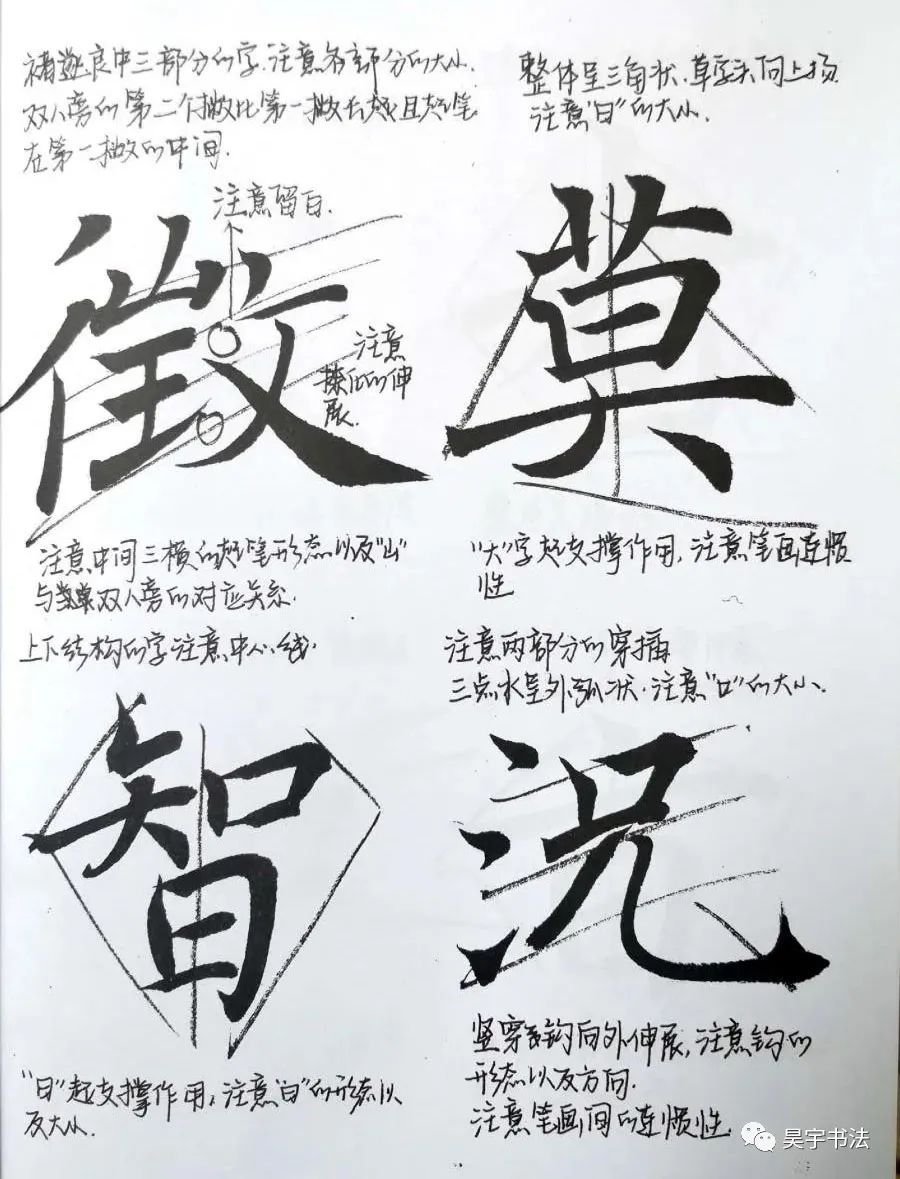 褚遂良中三部分的字.注意各部分的大小.
双人旁的第二个撇比第一撇长,且起笔
在第一撇的中间.
注意留白.
徵
注意
捺化的伸
展.
注意中间三横的起笔形态以及"山"
与双人旁的对应关系.
整体呈三角状.草字头向上扬
注意"日"的大小.
莫
"大"字起支撑作用,注意笔画连惯
性
上下结构的字注意中心线.
智
"日"起支撑作用,注意"日"的形态以
及大小.
注意两部分的穿插
三点水呈外弧状.注意"口"的大小、
况
竖弯钩向外伸展,注意钩的
形态以及方向.
注意笔画间的连惯性.
昊宇书法